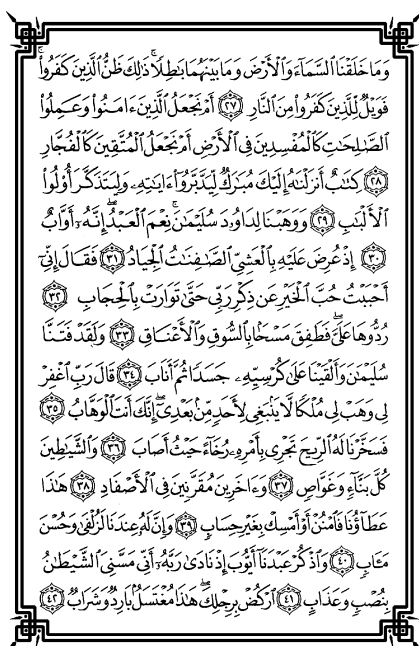 وَمَا خَلَقْنَا ٱلسَّمَآءَ وَٱلْأَرْضَ وَمَا بَيْنَهُمَا بَٰطِلًا ۚ ذَٰلِكَ ظَنُّ ٱلَّذِينَ كَفَرُوا۟ ۚ
فَوَيْلٌ لِّلَّذِينَ كَفَرُوا۟ مِنَ ٱلنَّارِ ٢٧ أَمْ نَجْعَلُ ٱلَّذِينَ ءَامَنُوا۟ وَعَمِلُوا۟
ٱلصَّٰلِحَٰتِ كَٱلْمُفْسِدِينَ فِى ٱلْأَرْضِ أَمْ نَجْعَلُ ٱلْمُتَّقِينَ كَٱلْفُجَّارِ
٢٨ كِتَٰبٌ أَنزَلْنَٰهُ إِلَيْكَ مُبَٰرَكٌ لِّيَدَّبَّرُوٓا۟ ءَايَٰتِهِۦ وَلِيَتَذَكَّرَ أُو۟لُوا۟
ٱلْأَلْبَٰبِ ٢٩ وَوَهَبْنَا لِدَاوُۥدَ سُلَيْمَٰنَ ۚ نِعْمَ ٱلْعَبْدُ ۖ إِنَّهُۥٓ أَوَّابٌ
٣٠ إِذْ عُرِضَ عَلَيْهِ بِٱلْعَشِىِّ ٱلصَّٰفِنَٰتُ ٱلْجِيَادُ ٣١ فَقَالَ إِنِّىٓ
أَحْبَبْتُ حُبَّ ٱلْخَيْرِ عَن ذِكْرِ رَبِّى حَتَّىٰ تَوَارَتْ بِٱلْحِجَابِ ٣٢
رُدُّوهَا عَلَىَّ ۖ فَطَفِقَ مَسْحًۢا بِٱلسُّوقِ وَٱلْأَعْنَاقِ ٣٣ وَلَقَدْ فَتَنَّا
سُلَيْمَٰنَ وَأَلْقَيْنَا عَلَىٰ كُرْسِيِّهِۦ جَسَدًا ثُمَّ أَنَابَ ٣٤ قَالَ رَبِّ ٱغْفِرْ
لِى وَهَبْ لِى مُلْكًا لَّا يَنۢبَغِى لِأَحَدٍ مِّنۢ بَعْدِىٓ ۖ إِنَّكَ أَنتَ ٱلْوَهَّابُ ٣٥
فَسَخَّرْنَا لَهُ ٱلرِّيحَ تَجْرِى بِأَمْرِهِۦ رُخَآءً حَيْثُ أَصَابَ ٣٦ وَٱلشَّيَٰطِينَ
كُلَّ بَنَّآءٍ وَغَوَّاصٍ ٣٧ وَءَاخَرِينَ مُقَرَّنِينَ فِى ٱلْأَصْفَادِ ٣٨ هَٰذَا
عَطَآؤُنَا فَٱمْنُنْ أَوْ أَمْسِكْ بِغَيْرِ حِسَابٍ ٣٩ وَإِنَّ لَهُۥ عِندَنَا لَزُلْفَىٰ وَحُسْنَ
مَـَٔابٍ ٤٠ وَٱذْكُرْ عَبْدَنَآ أَيُّوبَ إِذْ نَادَىٰ رَبَّهُۥٓ أَنِّى مَسَّنِىَ ٱلشَّيْطَٰنُ
بِنُصْبٍ وَعَذَابٍ ٤١ ٱرْكُضْ بِرِجْلِكَ ۖ هَٰذَا مُغْتَسَلٌۢ بَارِدٌ وَشَرَابٌ ٤٢